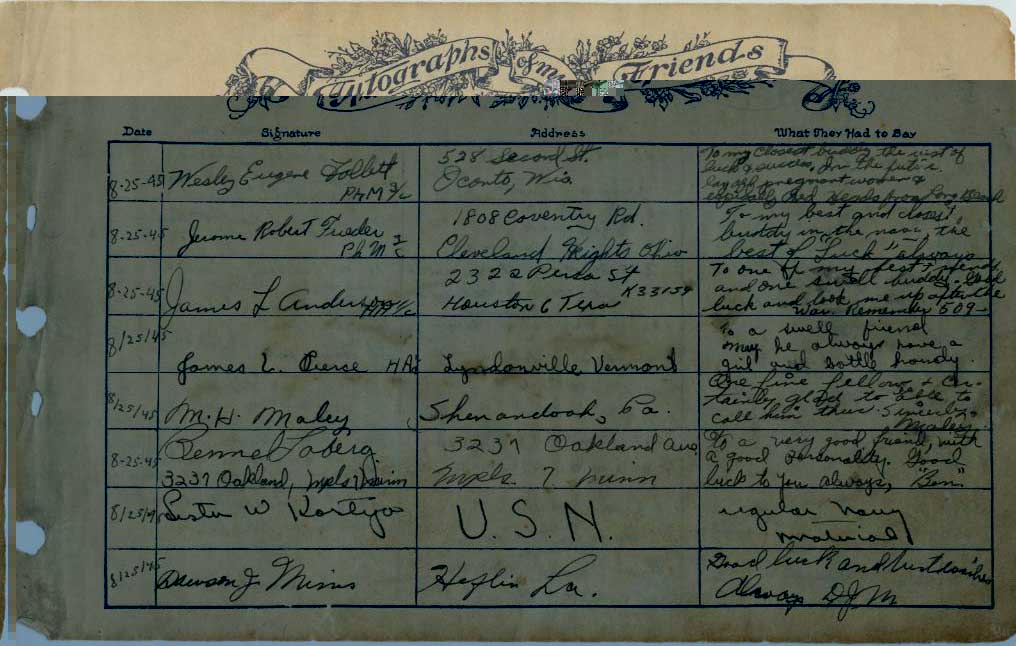 Autographs of my Friends
Date Signature Address What They Had to Say
8-25-45 Wesley Eugene Follett PhM 3/c
528 Second St.
Oconto, Wis.
To my closest buddy the best of
luck & success, in the future
lay off pregnant women &
especially Red Heads from Long Beach
8-25-45 Jerome Robert Frieder
PhM 2/c
1808 Coventry Rd.
Cleveland Heights Ohio
To my best and closest
buddy in the navy, the
best of "Luck" always
8-25-45 James L Anderson HA 1/c
2322 Persa St
Houston 6 Texas K33159
To one of my best friends
and one swell buddy. Good
luck and look me up after the
War. Remember 509-
8/25/45 James L. Pierse HA1
Lyndonville Vermont
To a swell friend
may he always have a
girl and bottle handy.
8/25/45 M. H. Maley
Shenandoah, Pa.
One fine fellow & cer-
tainly glad to able to
call him thus. Sincerely,
Maley
8-25-45 Bennel Soberg
3237 Oakland, Mpls 7 Minn
3237 Oakland Ave
Mpls. 7 Minn
To a very good friend, with
a good personality. Good
luck to you always, "Ben"
8/25/45 Lester W
U.S.N.
regular Navy
material
8/25/45 Dawson J. Mims
Heflin La.
Good luck and best wishes
Always DJM